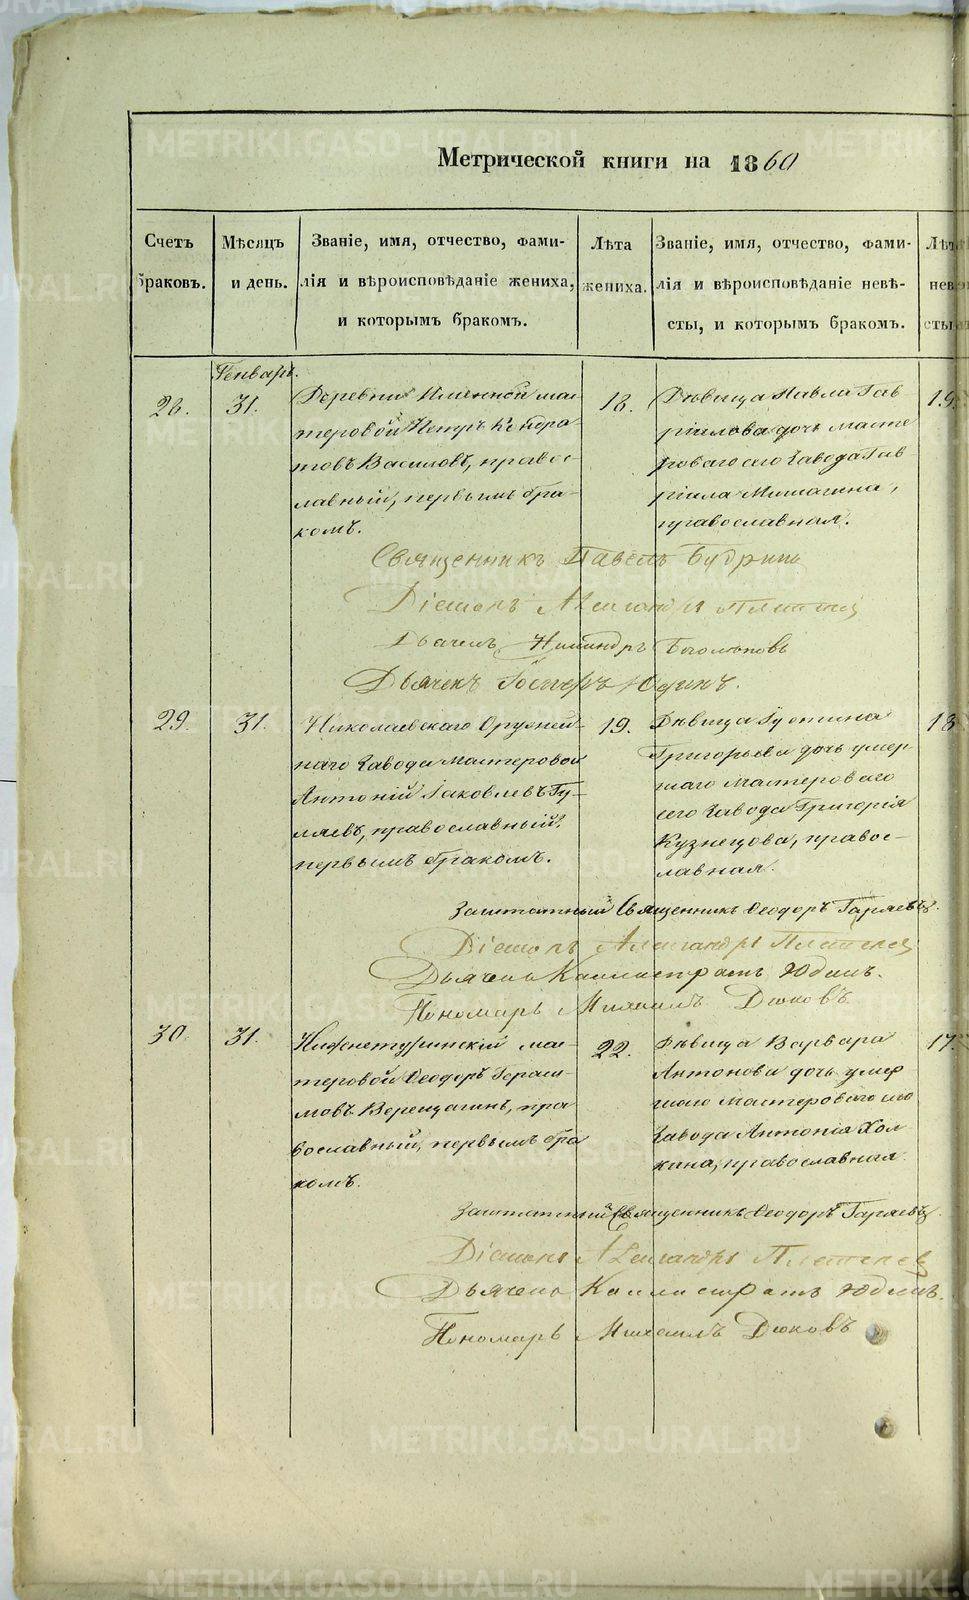 METRIKI.GASO-URAL.RU
Метрической книги на 1860
Счетъ браковъ.
Мѣсяцъ и день.
Званіе, имя, отчество, фамилія и вѣроисповѣданіе жениха, и которымъ бракомъ.
Лѣта жениха.
Званіе, имя, отчество, фамилія и вѣроисповѣданіе невѣсты, и которымъ бракомъ.
Генварь.
28.
31.
Деревни Именной мас-
теровой Петръ Кондра
товъ Василовъ, правос-
лавный, первымъ бра-
комъ.
18.
Дѣвица Павла Гав
ріилова дочь масте
роваго сего завода Гав-
ріила Мишагина,
православная.
19.
Священникъ Павелъ Будринъ
Діаконъ Александръ
Дьячекъ Никандръ Боголѣповъ
Дьячекъ Юдинъ.
29.
31.
Николаевскаго Оружей-
наго завода мастеровой
Антоній Іаковлевъ Гу-
ляевъ, православный,
первымъ бракомъ.
19.
Дѣвица Іустина
Григорьева дочь умер
шаго мастероваго
сего завода Григорія
Кузнецова, правос-
лавная.
18
Заштатный Священникъ Ѳеодоръ Гаряевъ.
Діаконъ Александръ
Дьячекъ Каллистратъ Юдинъ.
Пономарь Михаилъ Дюковъ
30.
31.
Нижнетуринскій мас-
теровой Ѳеодоръ Гераси-
мовъ Верещагинъ, пра
вославный, первымъ бра
комъ.
22.
Дѣвица Варвара
Антонова дочь умер
шаго мастероваго сего
завода Антонія Хол
кина, православная.
17.
Заштатный Священникъ Ѳеодоръ Гаряевъ.
Діаконъ Александръ
Дьячекъ Каллистратъ Юдинъ.
Пономарь Михаилъ Дюковъ